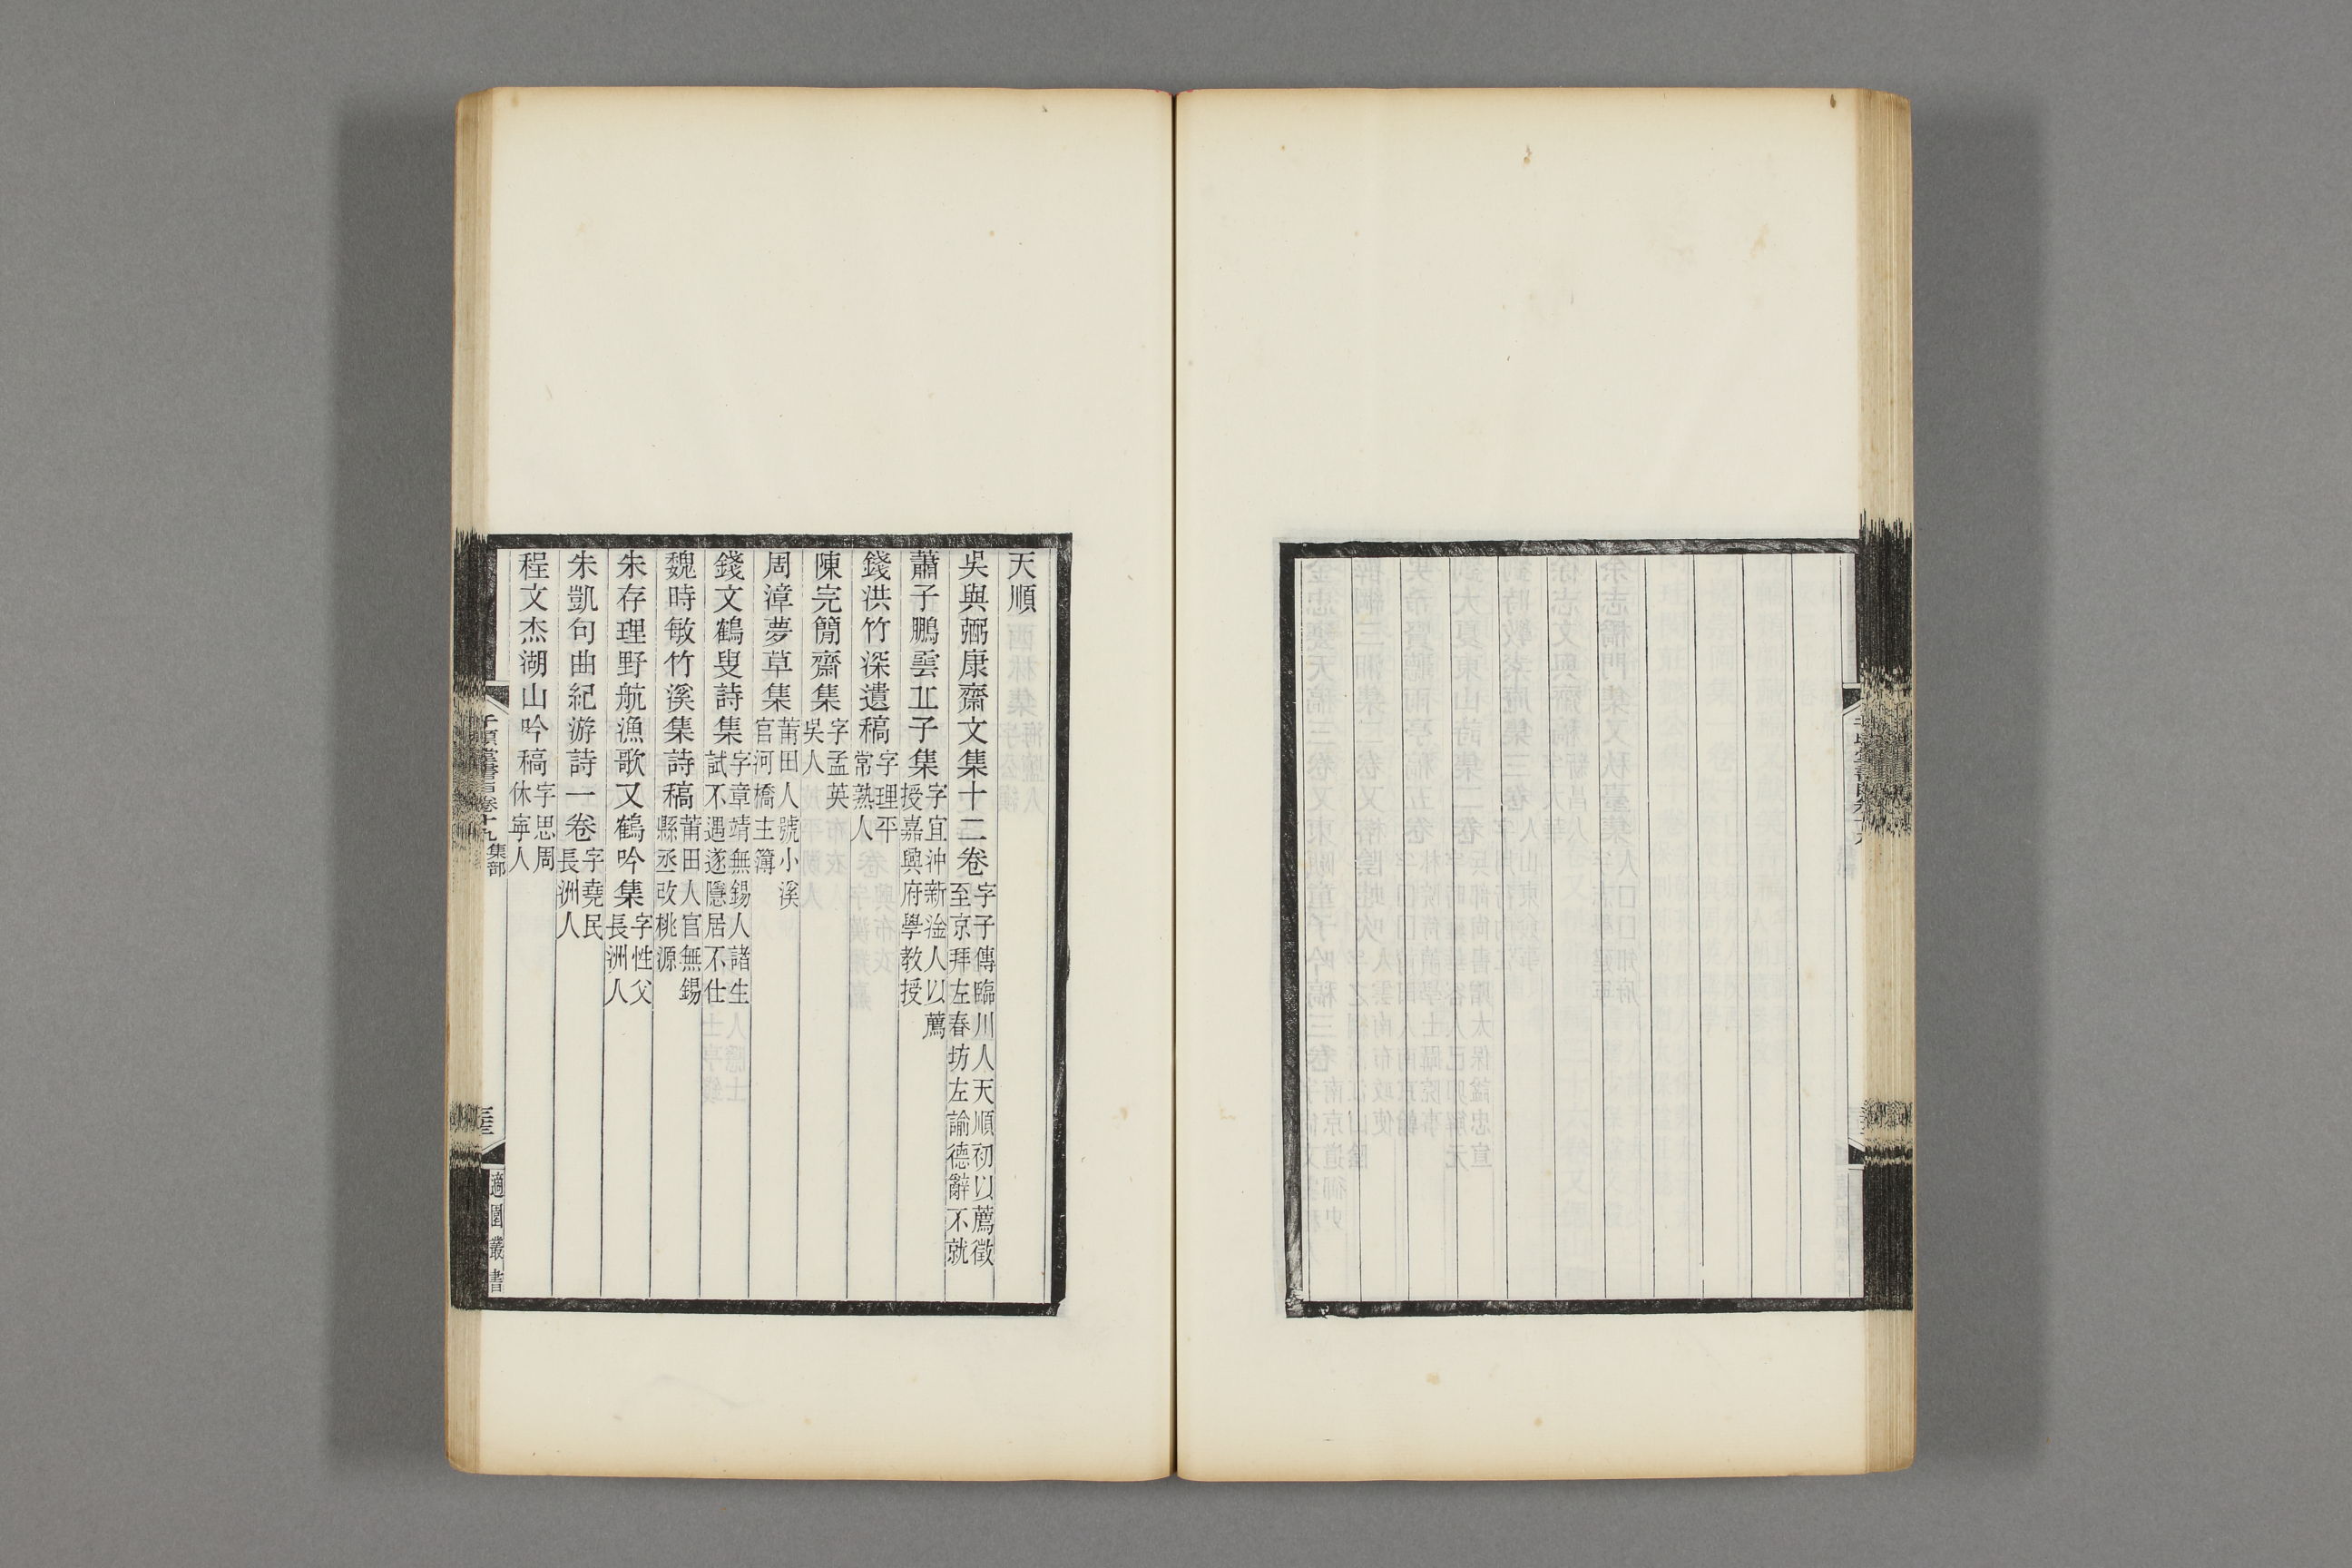 天順
吳與弼康齋文集十二卷字子傳臨川人天順初以薦徵至京拜左春坊左諭德辭不就
蕭子鵬雲丘子集字宜沖新淦人以薦授嘉興府學教授
錢洪竹深遺稿字理平常熟人
陳完簡齋集字孟英吳人
周漳夢草集莆田人號小溪官河橋主簿
錢文鶴叟詩集字章靖無錫人諸生試不遇遂隱居不仕
魏時敏竹溪集詩稿莆田人官無錫縣丞改桃源
朱存理野航漁歌又鶴吟集字性父長洲人
朱凱句曲紀游詩一卷字堯民長洲人
程文杰湖山吟稿字思周休寧人
千頃堂書目卷十九 集部
適園叢書